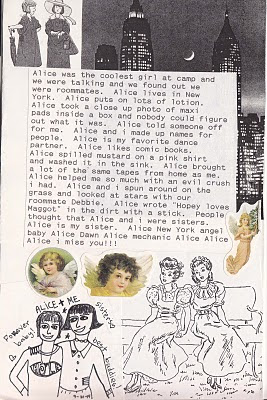 Alice was the coolest girl at camp and
we were talking and we found out we
were roommates.  Alice lives in New
York.  Alice puts on lots of lotion.
Alice took a close up photo of maxi
pads inside a box and nobody could figure
out what it was.  Alice told someone off
for me.  Alice and i made up names for
people.  Alice is my favorite dance
partner.  Alice likes comic books.
Alice spilled mustard on a pink shirt
and washed it in the sink.  Alice brought
a lot of the same tapes from home as me.
Alice helped me so much with an evil crush
i had.  Alice and i spun around on the
grass and looked at stars with our
roommate Debbie.  Alice wrote "Hopey loves
Maggot" in the dirt with a stick.  People
thought that Alice and i were sisters.
Alice is my sister.  Alice New York angel
baby Alice Dawn Alice mechanic Alice Alice
Alice i miss you!!!
ALiCE + ME
Forever
baby
sisters
best buddies